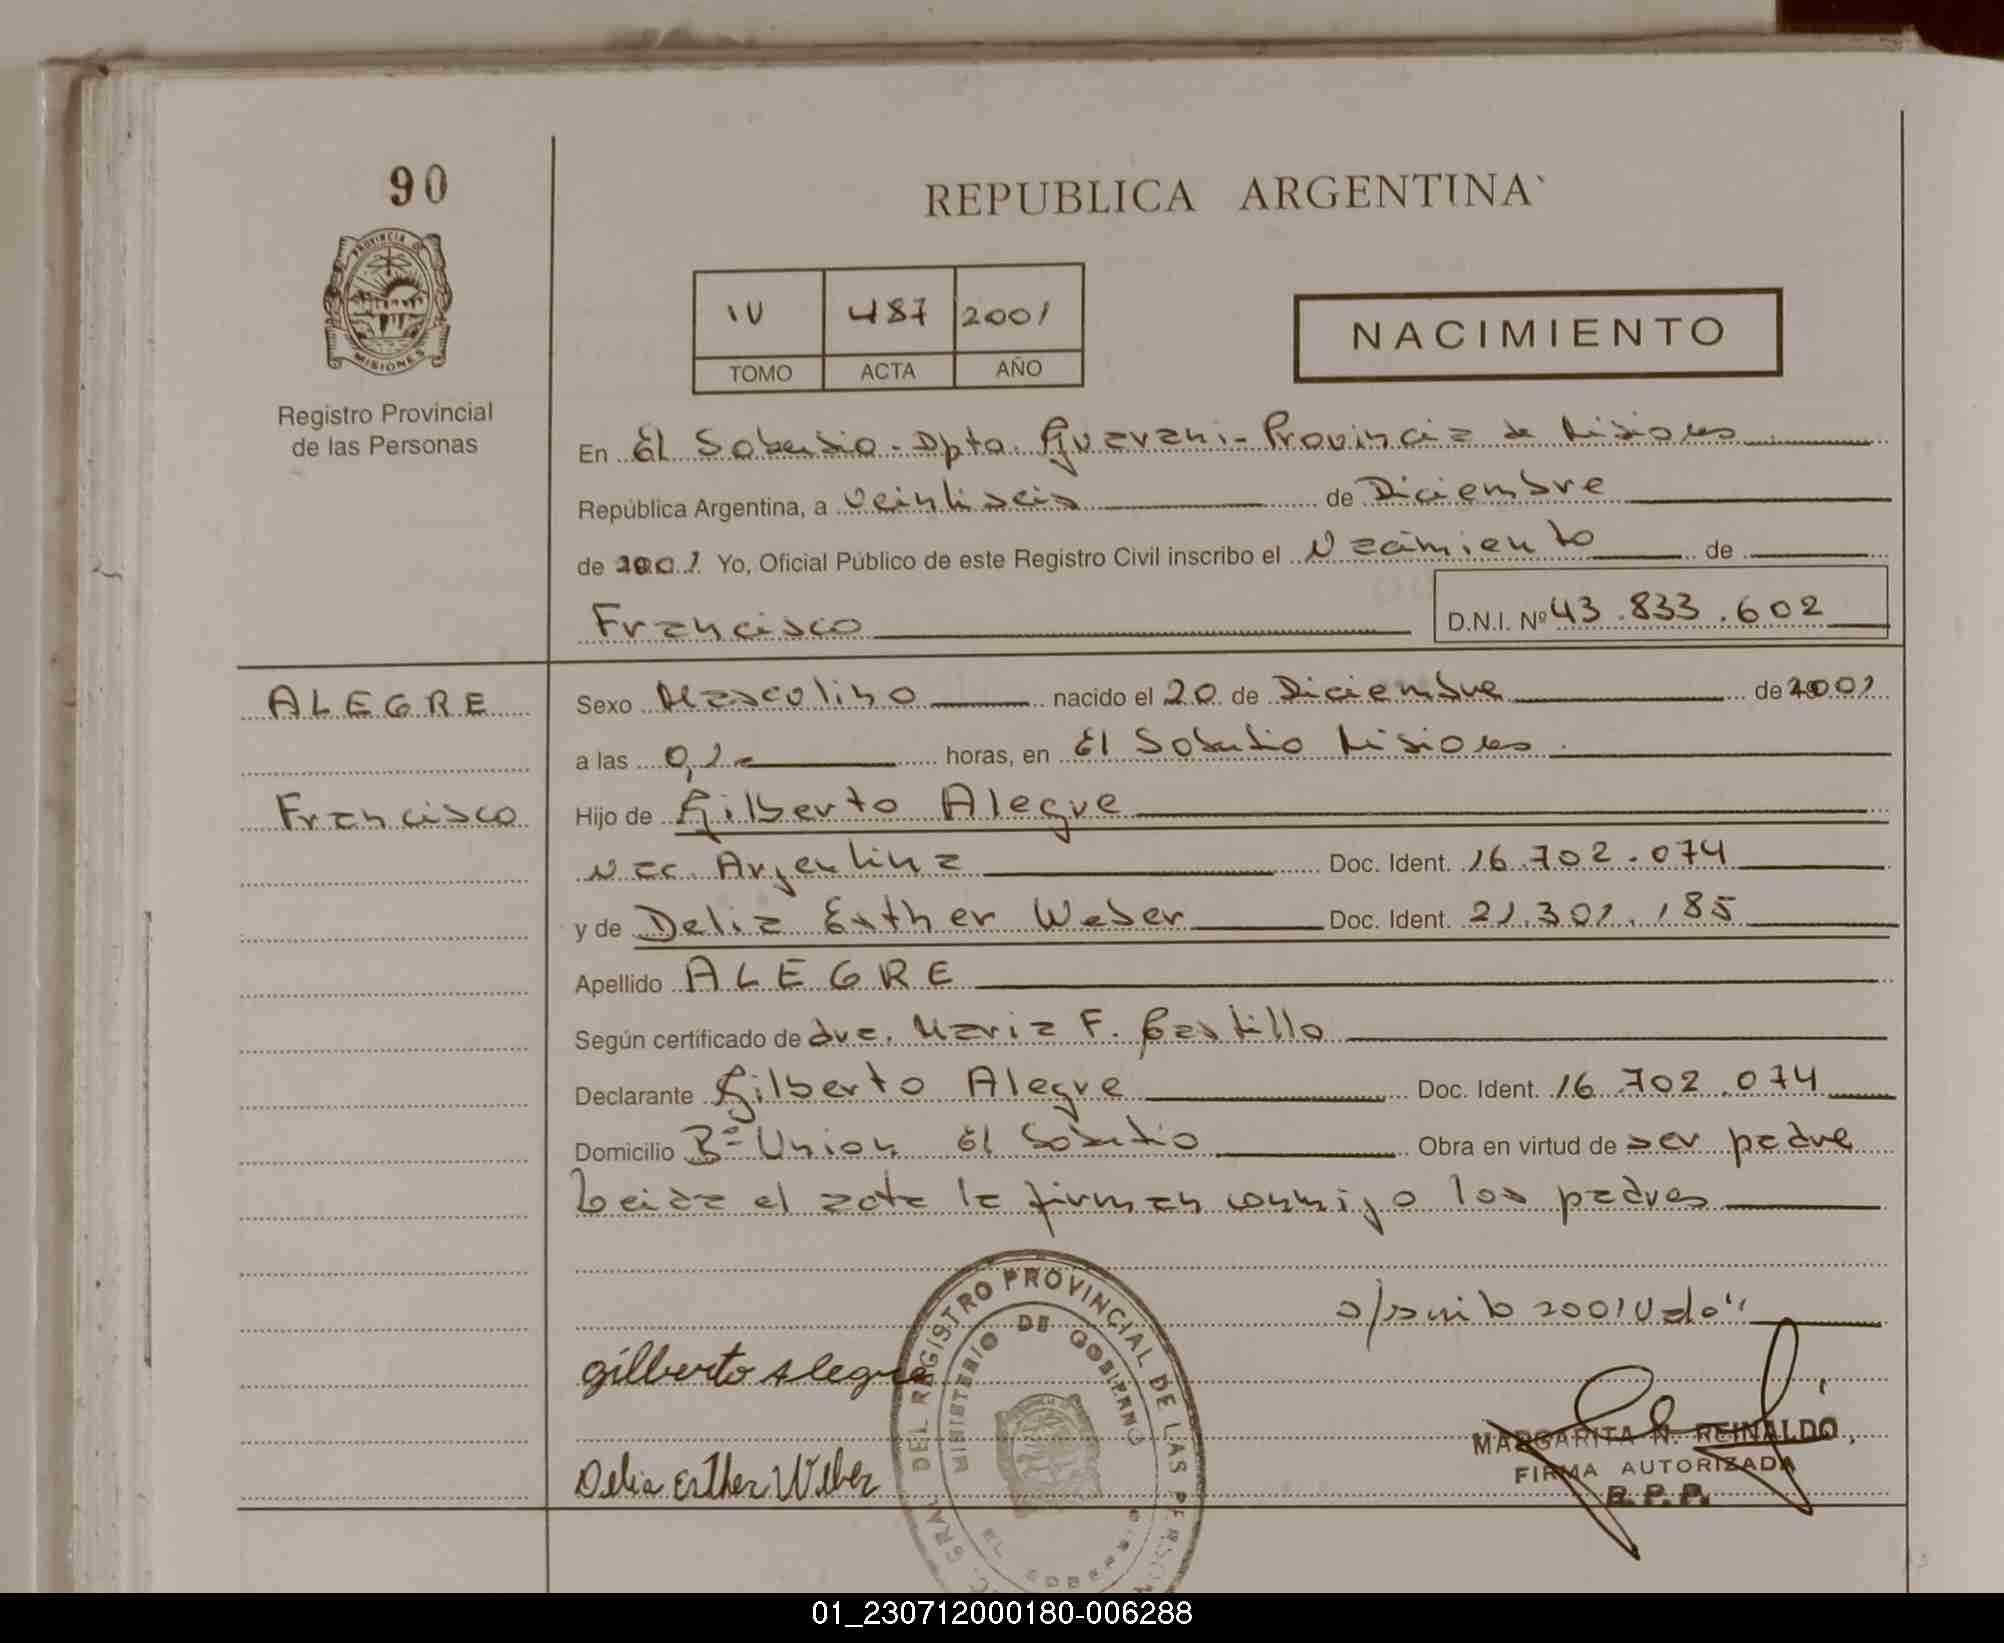 90
REPUBLICA ARGENTINA
PROVINCIA DE
MISIONES
Registro Provincial
de las Personas
IV 487 2001
TOMO ACTA AÑO
NACIMIENTO
En El Soberbio - Dpto. Guarani - Provincia de Misiones
República Argentina, a veintiseis de Diciembre
de 2001 Yo, Oficial Público de este Registro Civil inscribo el Nacimiento de
Francisco D.N.I. Nº 43.833.602
ALEGRE
Francisco
Sexo Masculino nacido el 20 de Diciembre de 2001
a las horas, en El Soberbio Misiones
Hijo de Gilberto Alegre
Nac. Argentina Doc. Ident. 16.702.074
y de Delia Esther Weber Doc. Ident. 21.301.185
Apellido ALEGRE
Según certificado de dra. Maria F. Castillo
Declarante Gilberto Alegre Doc. Ident. 16.702.074
Domicilio Bº Union El Soberbio Obra en virtud de ser padre
Leida el acta la firman conmigo los padres
2001 Vale"
Gilberto Alegre
Delia Esther Weber
DEL REGISTRO PROVINCIAL DE LAS PERSON
MINISTERIO DE GOBIERNO
MARGARITA N. REINALDO
FIRMA AUTORIZADA
R. P. P.
01_230712000180-006288